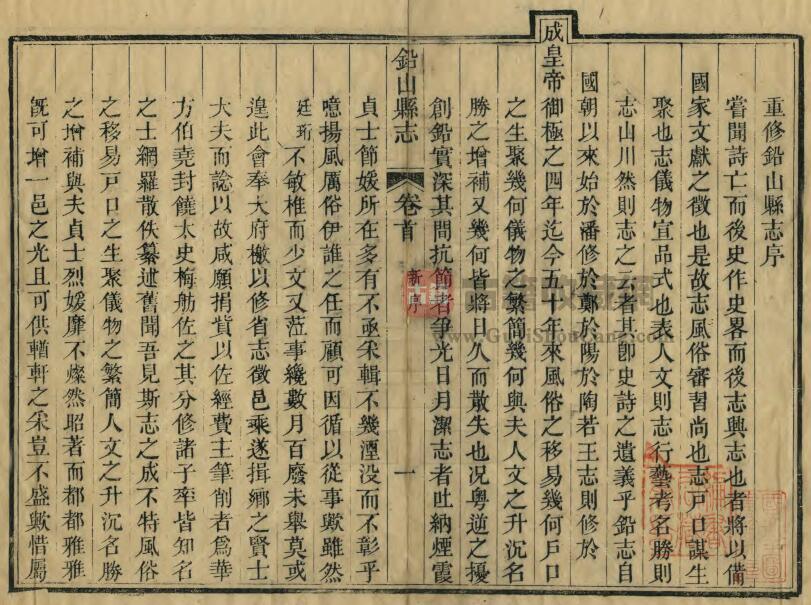 重修鉛山縣志序
嘗聞詩亡而後史作史畧而後志興志也者將以備
國家文獻之徵也是故志風俗審習尚也志戸口謀生
聚也志儀物宣品式也表人文則志行藝考名勝則
志山川然則志之云者其即史詩之遺義乎鉛志自
國朝以來始於潘修於鄭於陽於陶若王志則修於
成皇帝御極之四年迄今五十年來風俗之移易幾何戸口
之生聚幾何儀物之繁簡幾何與夫人文之升沉名
勝之增補又幾何皆將日久而散失也况粵逆之擾
創鉛實深其間抗節者爭光日月潔志者吐納煙霞
鉛山縣志
卷首
新序
一
貞士節媛所在多有不亟采輯不幾湮没而不彰乎
噫揚風厲俗伊誰之任而顧可因循以從事歟雖然
廷珩不敏椎而少文又蒞事纔數月百廢未舉莫或
遑此會奉大府檄以修省志徵邑乘遂揖鄉之賢士
大夫而諗以故咸願捐貲以佐經費主筆削者爲華
方伯堯封饒太史梅舫佐之其分修諸子率皆知名
之士網羅散佚纂述舊聞吾見斯志之成不特風俗
之移易戸口之生聚儀物之繁簡人文之升沉名勝
之增補與夫貞士烈媛靡不燦然昭著而都都雅雅
旣可增一邑之光且可供輶軒之采豈不盛歟惜屬
古籍收藏網
www.GuJiShouCang.com